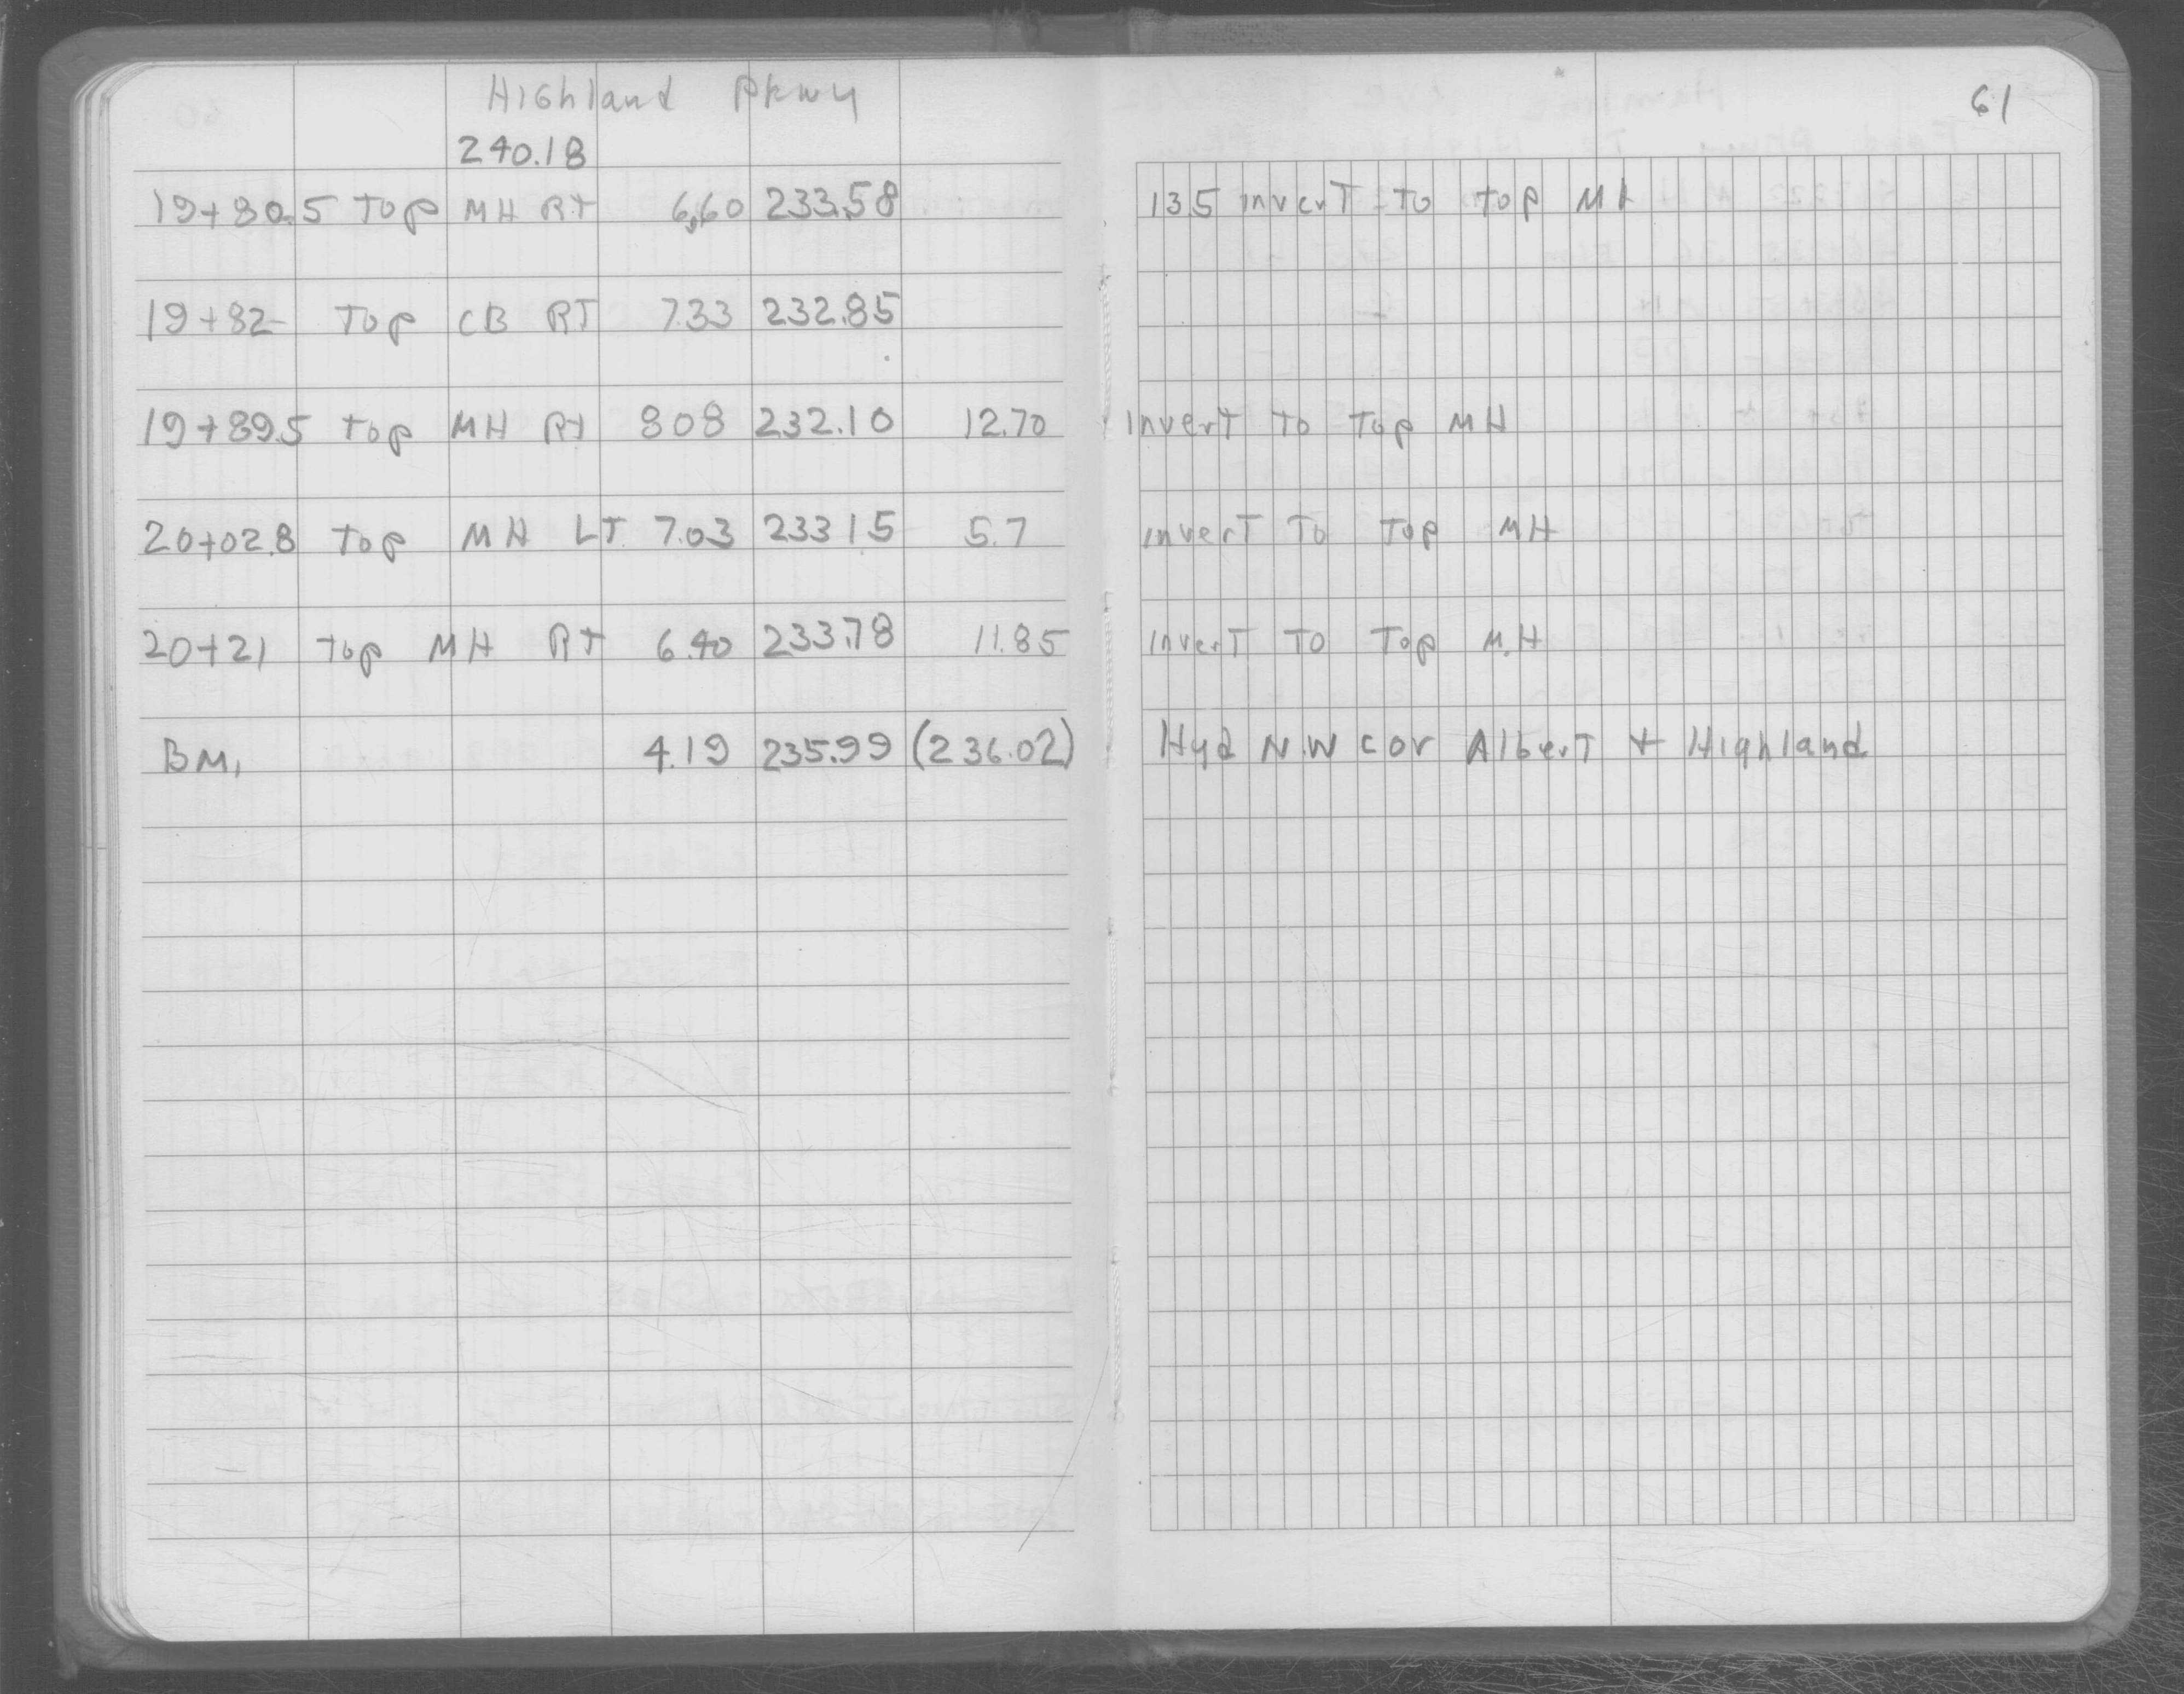 Highland Pkwy
61
240.18
19+80.5 Top MH RT 6.60 233.58 135 invert To Top MH
19+82 Top CB RT 7.33 232.85
19+89.5 Top MH RT 808 232.10 12.70 Invert To Top MH
20+02.8 Top MH LT 7.03 233 15 5.7 invert To Top MH
20+21 Top MH RT 6.40 233.78 11.85 invert To Top M.H
BM. 4.19 235.99 (236.02) Hyd N.W cor Albert + Highland